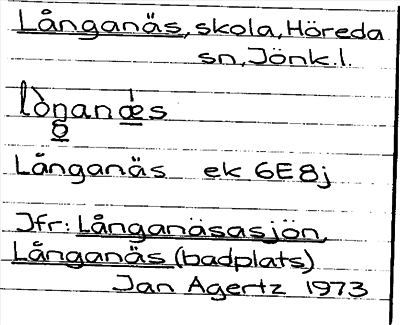 Långanäs, skola, Höreda
sn, Jönk.l.
lòŋanæ̍s
o
Långanäs ek 6E8j
Jfr: Långanäsasjön,
Långanäs (badplats)
Jan Agertz 1973